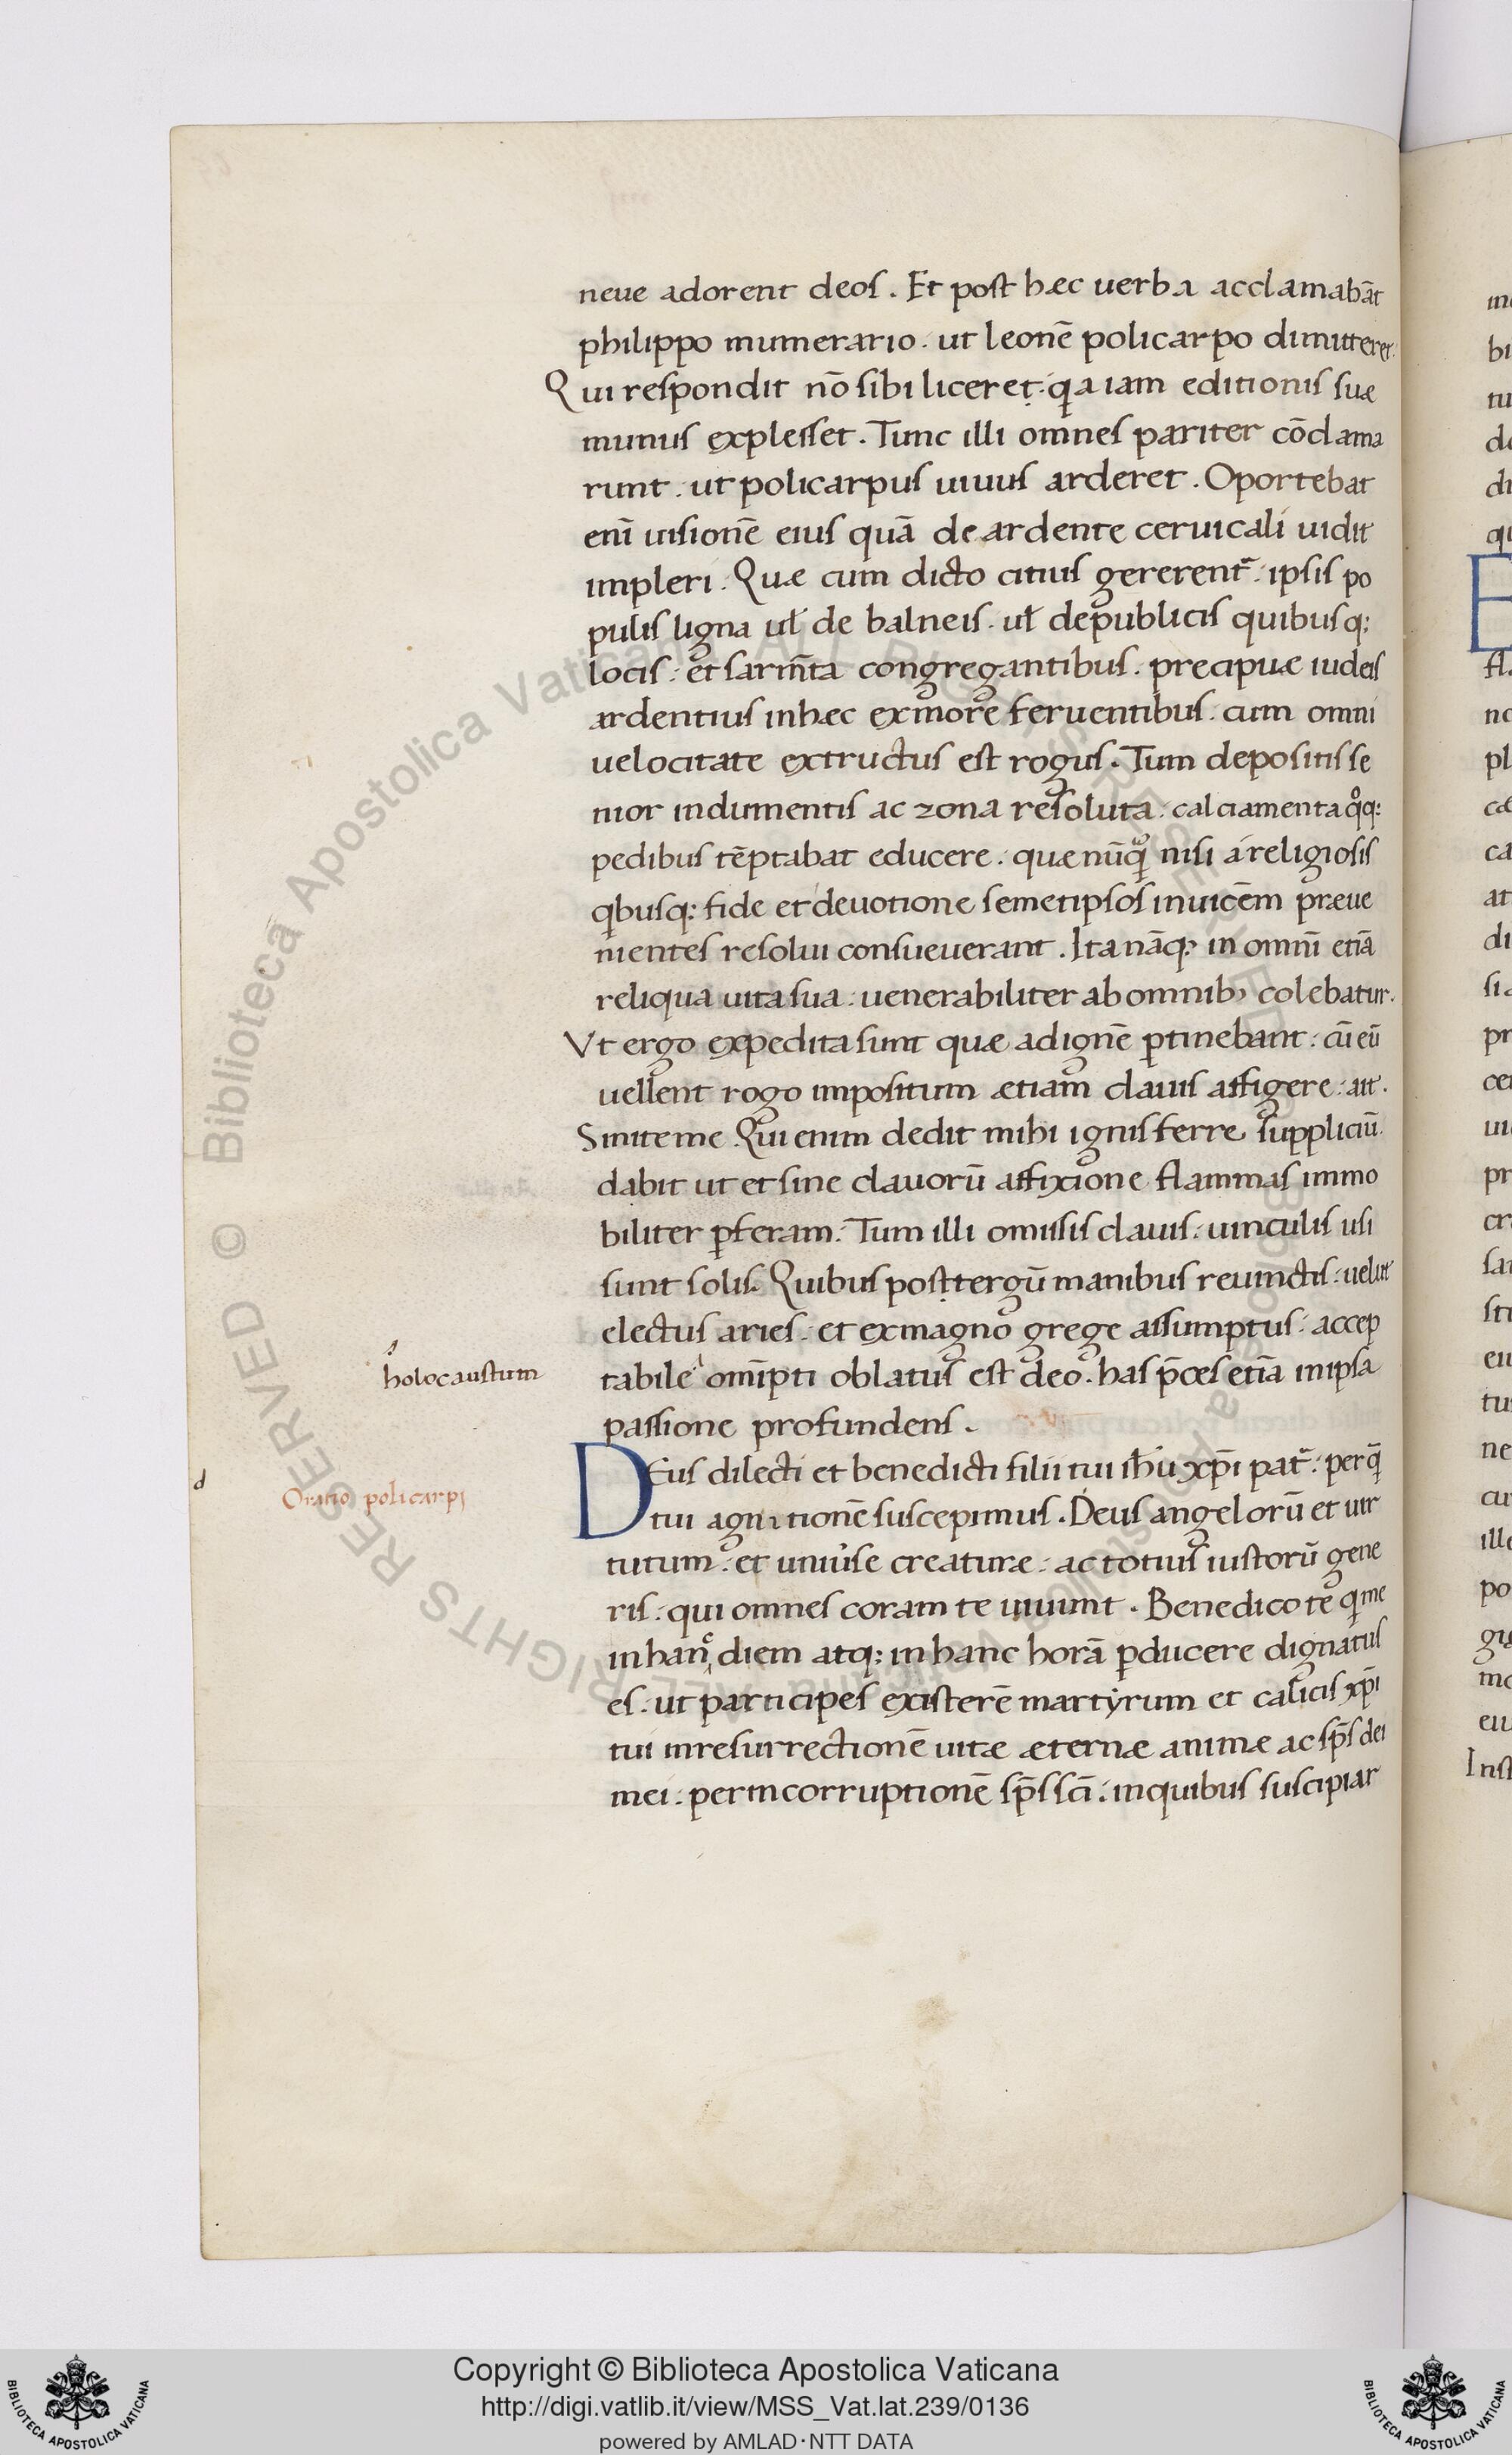 neue adorent deoſ. Et poſt hæc uerba acclamabāt
philippo mumerario. ut leonē policarpo dimitteret.
Qui reſpondit nō ſibi liceret: qa iam editioniſ ſuæ
munuſ expleſſet. Tunc illi omneſ pariter cōclama
runt. ut policarpuſ uiuuſ arderet. Oportebat
enī uiſionē eiuſ quā de ardente ceruicali uidit
impleri. Quæ cum dicto citiuſ gererent᷑. ipſiſ po
puliſ ligna ul̄ de balneiſ. ul̄ depubliciſ quibuſq;
lociſ: et ſarm̄ta congregantibuſ. precipuæ iudeiſ
ardentiuſ inhæc exmore feruentibuſ. cum omni
uelocitate extructuſ eſt roguſ. Tum depoſitiſ ſe
nior indumentiſ ac zona reſoluta: calciamenta qͦq:
pedibuſ tēptabat educere. quæ nūqͣ niſi áreligioſiſ
qbuſq: fide et deuotione ſemetipſoſ inuicēm præue
nienteſ reſolui conſueuerant. Ita nāq; in omnī etiā
reliqua uita ſua: uenerabiliter ab omnib; colebatur.
Vt ergo expedita ſunt quæ ad ignē ꝑtinebant: cū eū
uellent rogo impoſitum ætiam clauiſ affigere: ait.
Siniteme. Qui enim dedit mihi igniſ ferre ſuppliciū.
dabit ut et ſine clauorū affixione flammaſ immo
biliter ꝑferam. Tum illi omiſſiſ clauiſ: uinculiſ uſi
ſunt ſoliſ. Quibuſ poſttergū manibuſ reuinctiſ: uelut
electuſ arieſ: et exmagno grege aſſumptuſ: accep
holocauſtum
tabile omīpti oblatuſ eſt deo. haſ p̄ceſ etiā inipſa
paſſione profundenſ.
d
Oratio policarpi
DEuſ dilecti et benedicti filii tui ih̄u xp̄i pat᷑. perq̄
tui agnitionē ſuſcepimuſ. Deuſ angelorū et uir
tutum: et uniuſe creaturæ: ac totiuſ iuſtorū gene
riſ: qui omneſ coram te uiuunt. Benedico te q me
inhanc diem atq; inhanc horā ꝑducere dignatuſ
eſ: ut particepſ exiſterē martyrum et caliciſ xp̄i
tui inreſurrectionē uitæ æternæ animæ ac ſp̄ſ dei
mei: perincorruptionē ſp̄ſ ſc̄i: inquibuſ ſuſcipiar
Copyright © Biblioteca Apostolica Vaticana
http://digi.vatlib.it/view/MSS_Vat.lat.239/0136
powered by AMLAD·NTT DATA
BIBLIOTECA APOSTOLICA VATICANA
BIBLIOTECA APOSTOLICA VATICANA
© Biblioteca Apostolica Vaticana ALL RIGHTS RESERVED